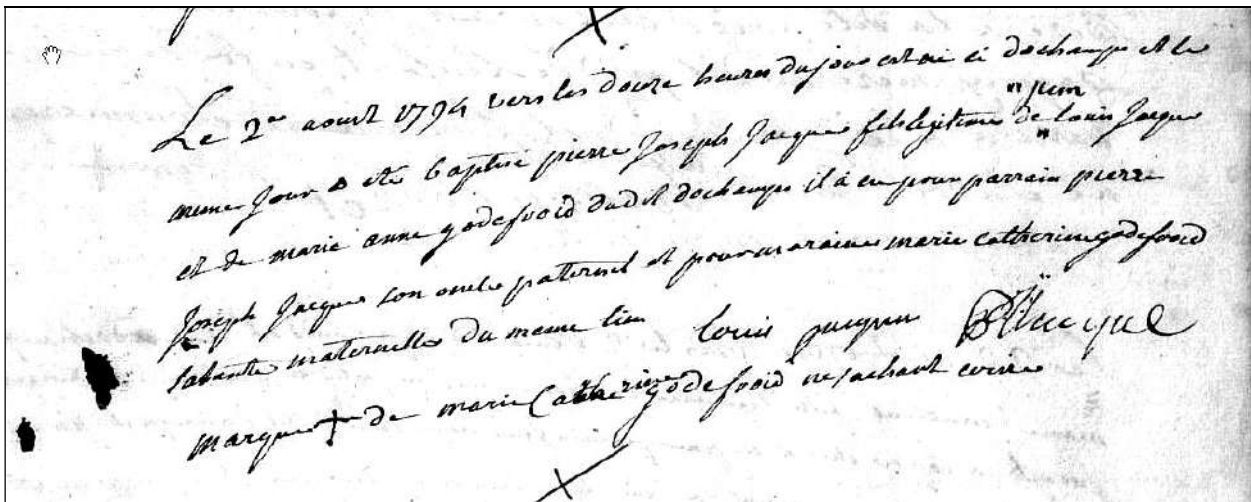 Le 2e aoust 1794 vers les douze heures du jour est né ci dochamps et le
"juin
meme jour a eté baptisé pierre Joseph Jacque fils legitime de louis Jacque
et de marie anne godefroid dudit dochamps il à eu pour parrain pierre
Joseph Jacques son oncle paternel et pour maraine marie catherine godefroid
sa tante maternelle du meme lieu louis jacque PJJacque
marque + de marie Catherine godefroid ne sachant ecrire